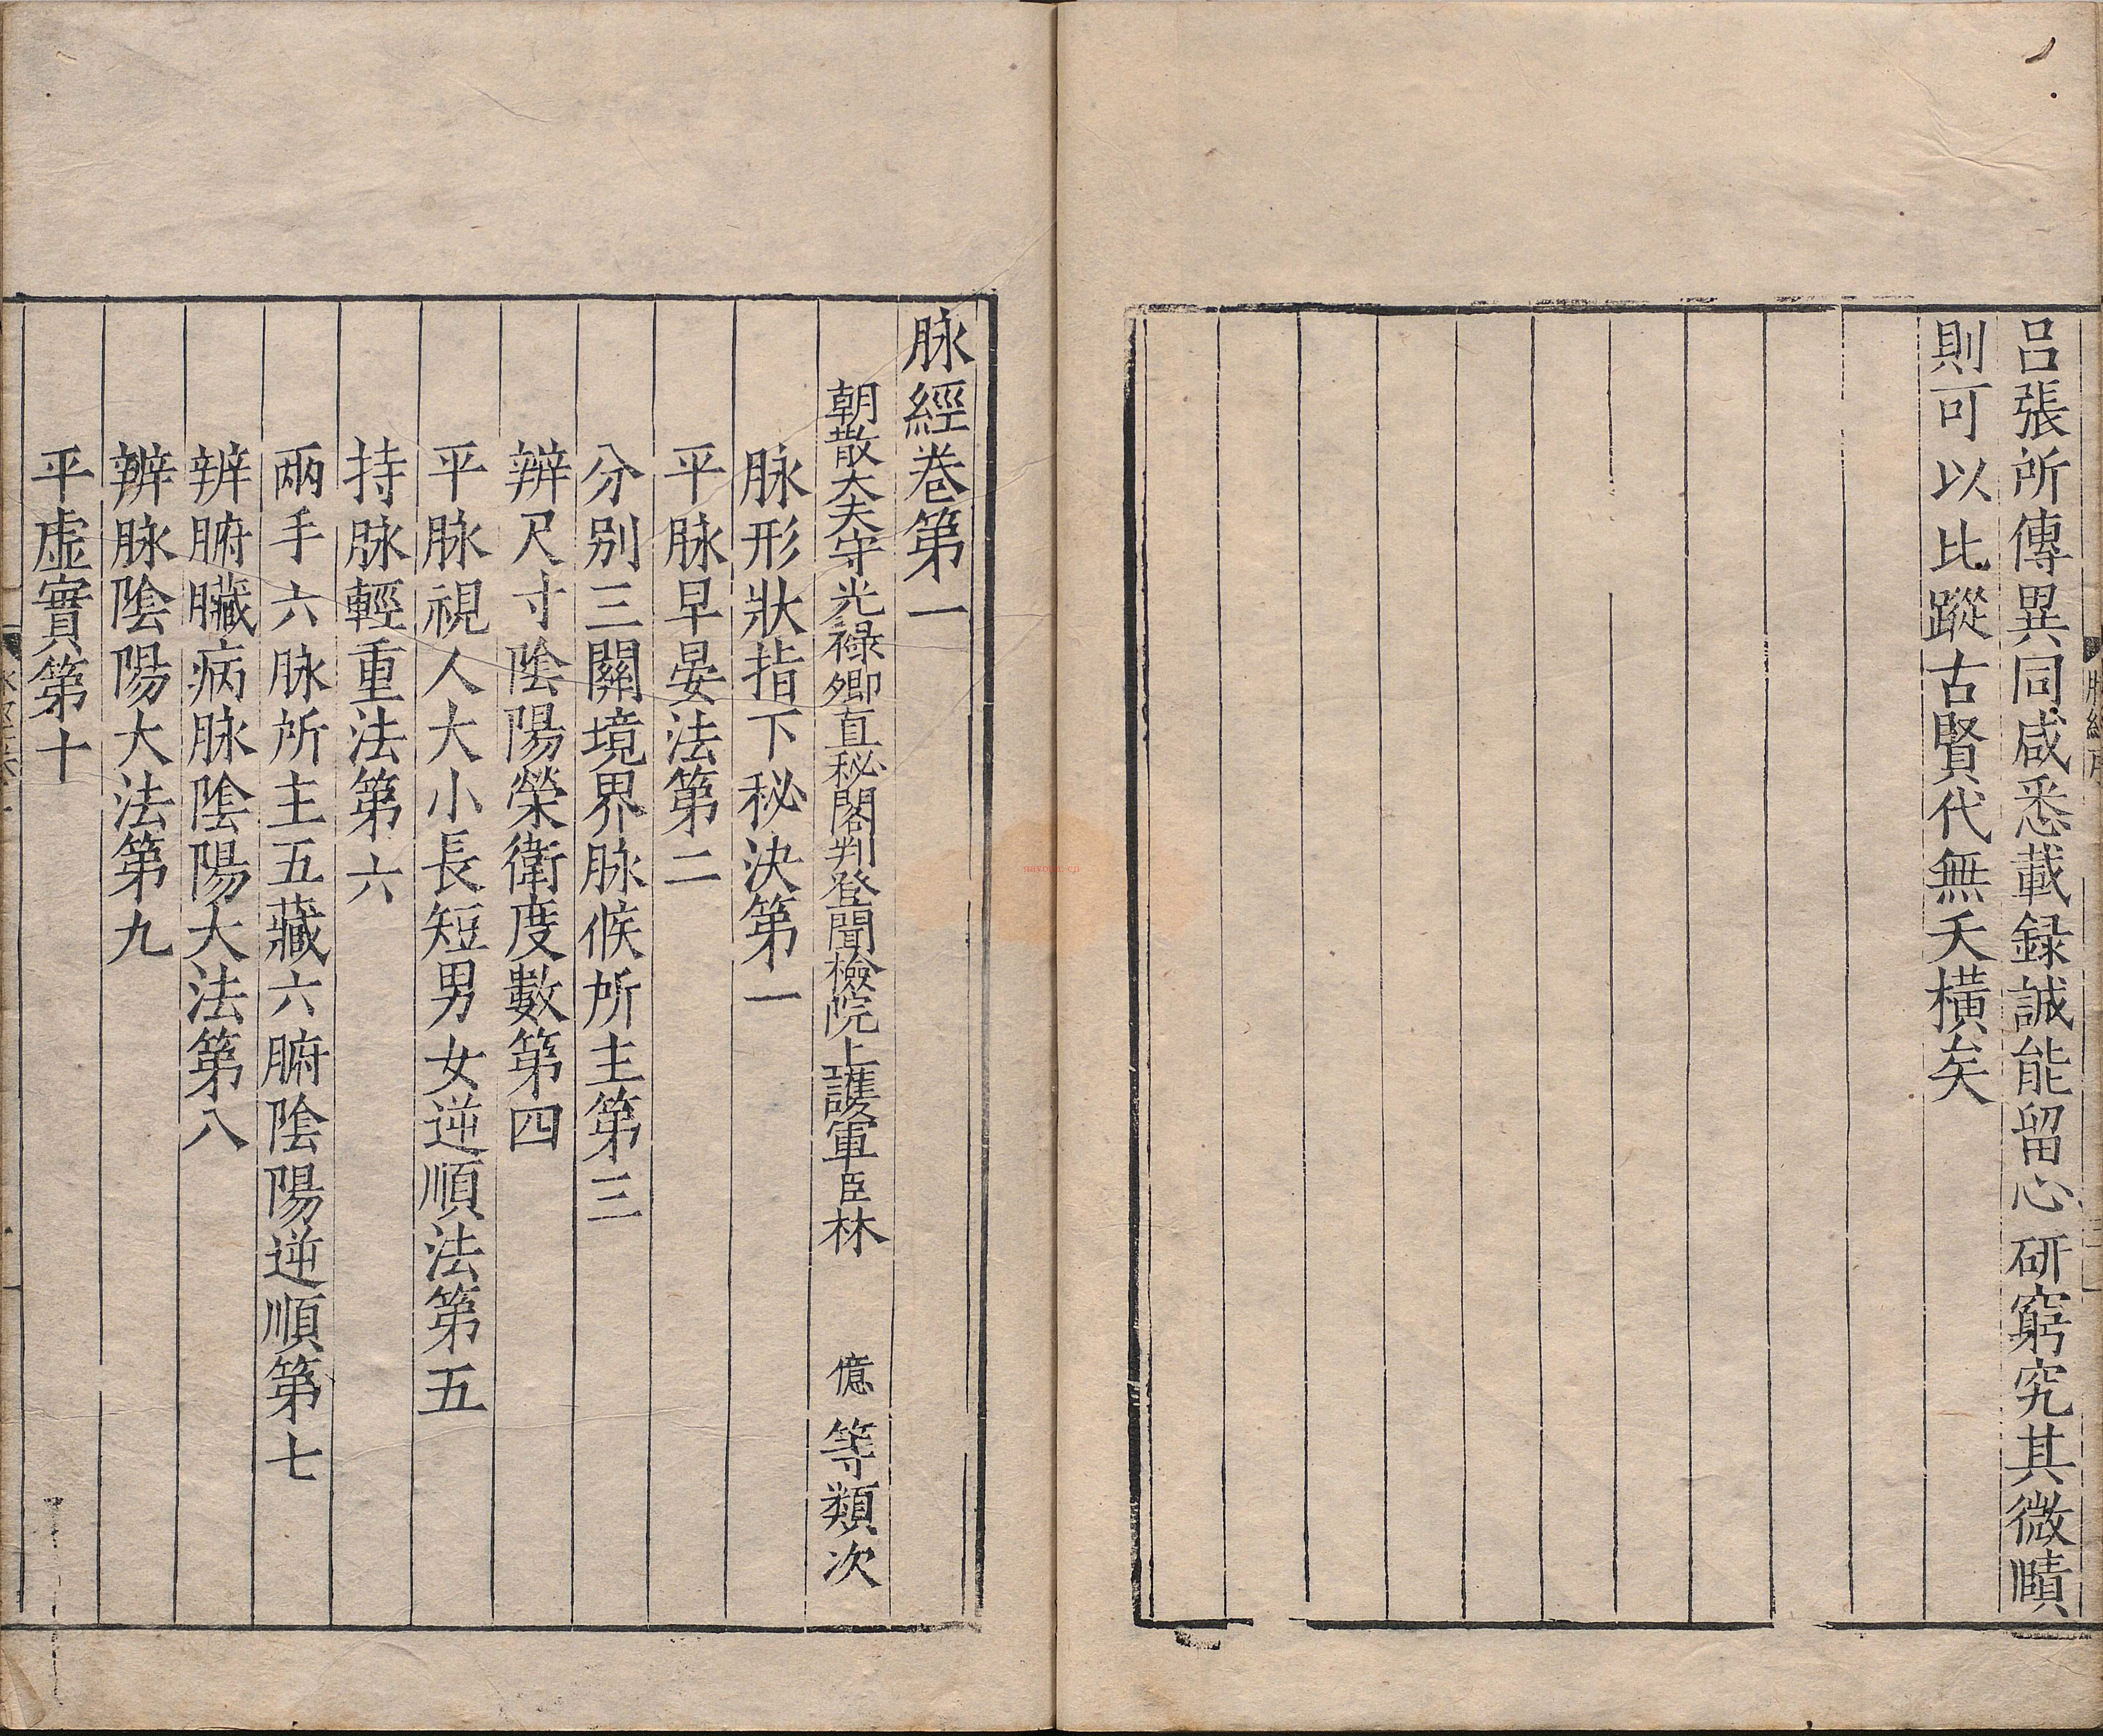 呂張所傳異同咸悉載録誠能留心研窮究其微賾
則可以比蹤古賢代無夭橫矣
脉經卷第一
朝散大夫守光禄卿直秘閣判登聞檢院上護軍臣林億等類次
脉形狀指下秘決第一
平脉早晏法第二
分別三關境界脉候所主第三
辨尺寸陰陽榮衛度數第四
平脉視人大小長短男女逆順法第五
持脉輕重法第六
兩手六脉所主五藏六腑陰陽逆順第七
辨腑臟病脉陰陽大法第八
辨脉陰陽大法第九
平虛實第十